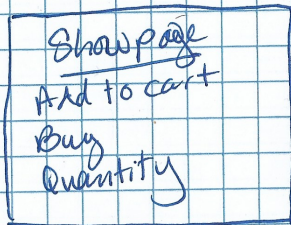 Show page
Add to cart
Buy
Quantity